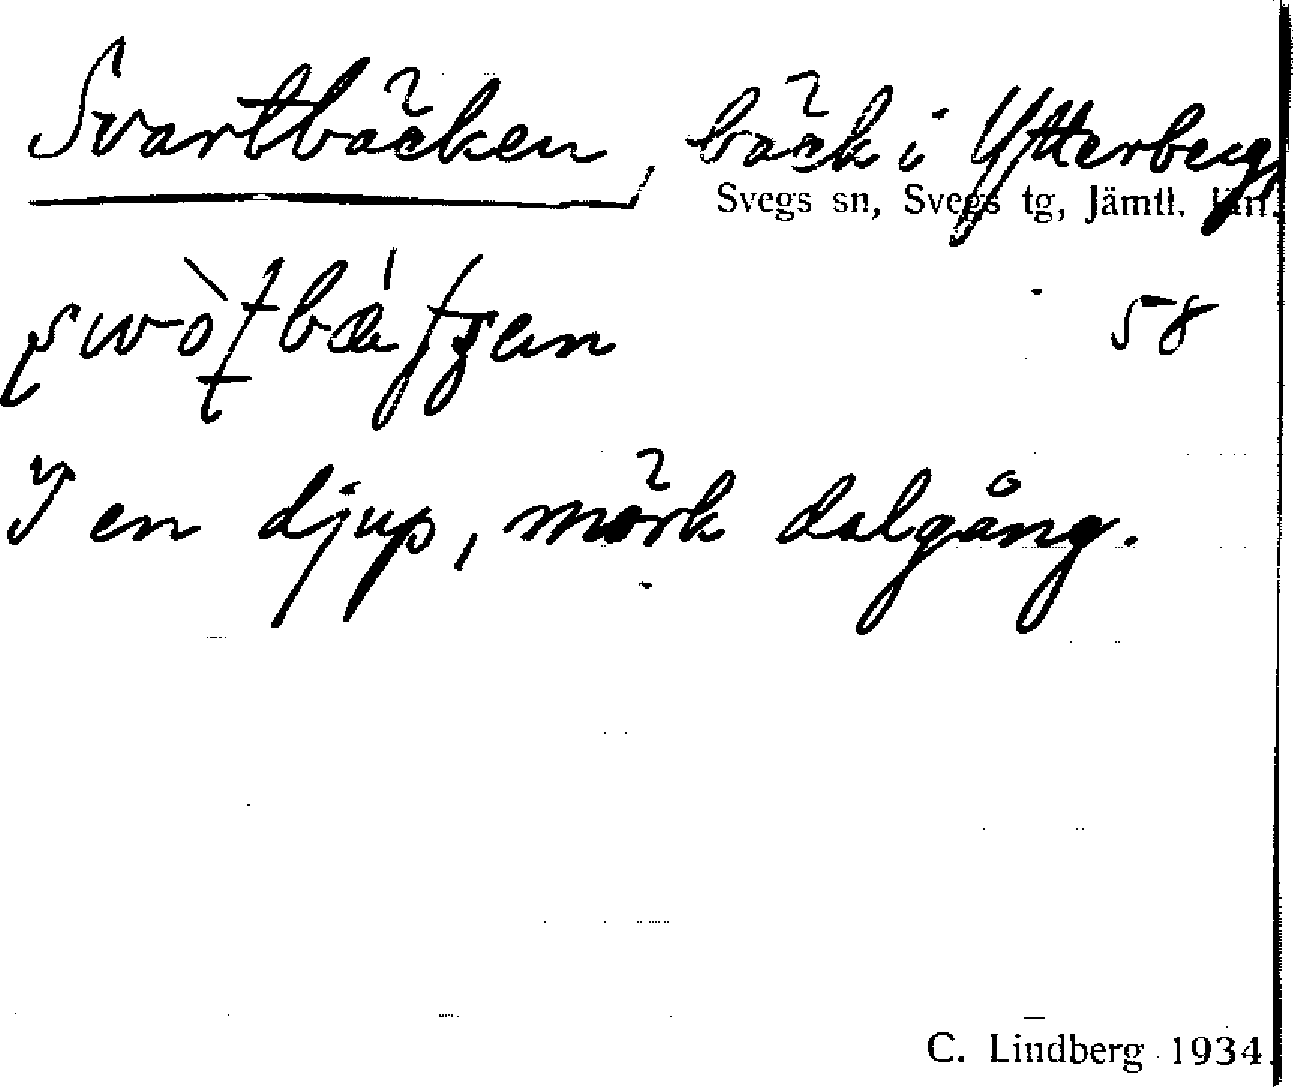 Svartbäcken, bäck i Ytterberg,
Svegs sn, Svegs tg, Jämtl. län.
58
I en djup, mörk dalgång.
C. Lindberg 1934.